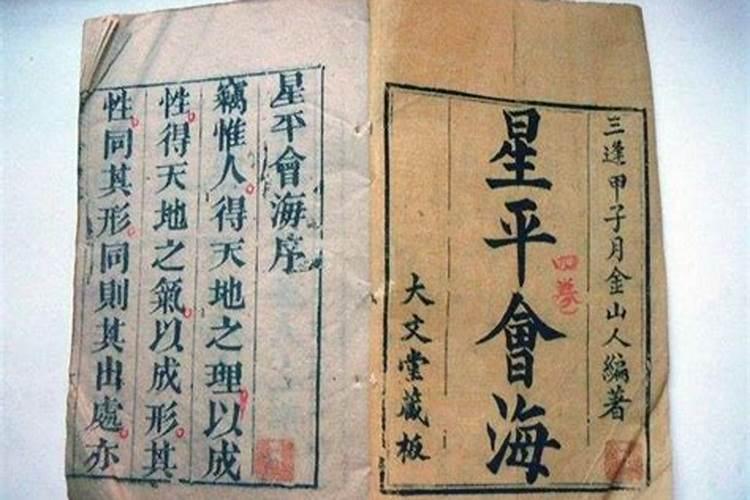 三逢甲子月金山人編著
星平會海
四卷
大文堂藏板
星平會海序
竊惟人得天地之理以成
性得天地之氣以成形其
性同其形同則其出處亦